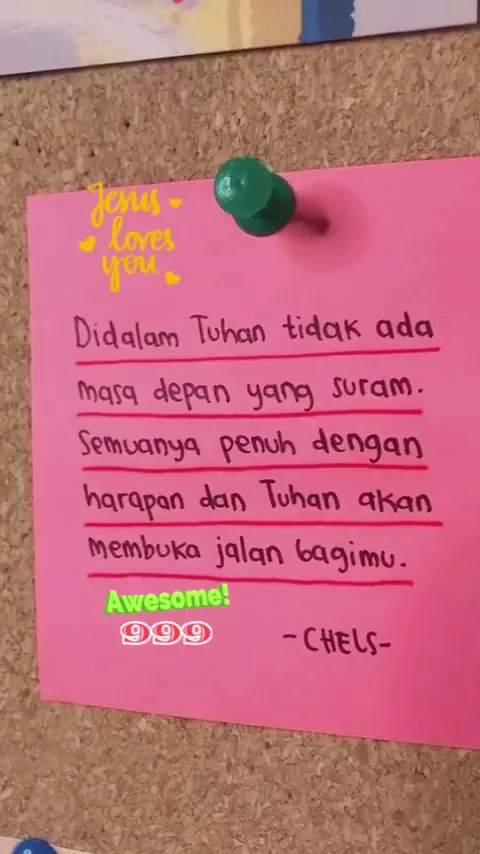 Jesus
loves
you
Didalam Tuhan tidak ada
masa depan yang suram.
Semuanya penuh dengan
harapan dan Tuhan akan
membuka jalan bagimu.
Awesome!
999
-CHELS-